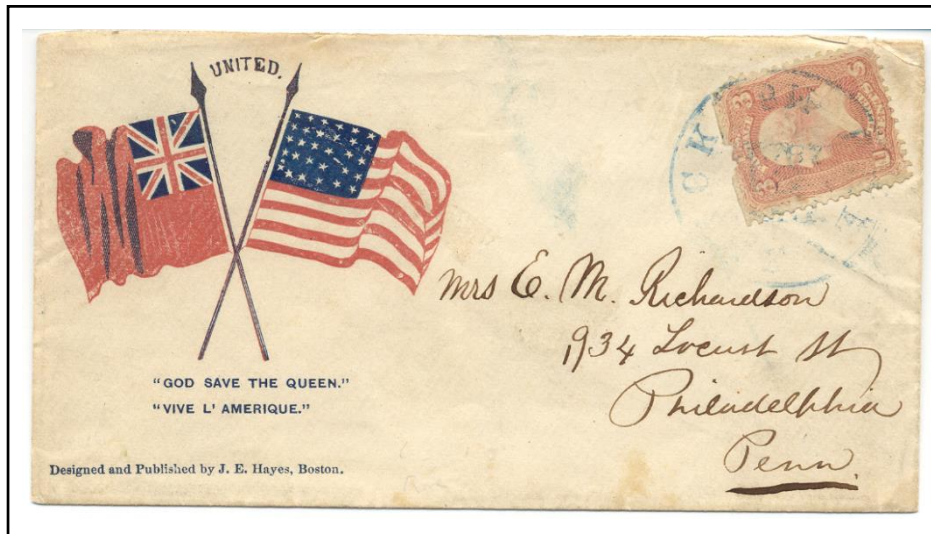 UNITED.
"GOD SAVE THE QUEEN."
"VIVE L' AMERIQUE."
Designed and Published by J. E. Hayes, Boston.
Mrs E. M. Richardson
1934 Locust St
Philadelphia
Penn.
3 3
U S